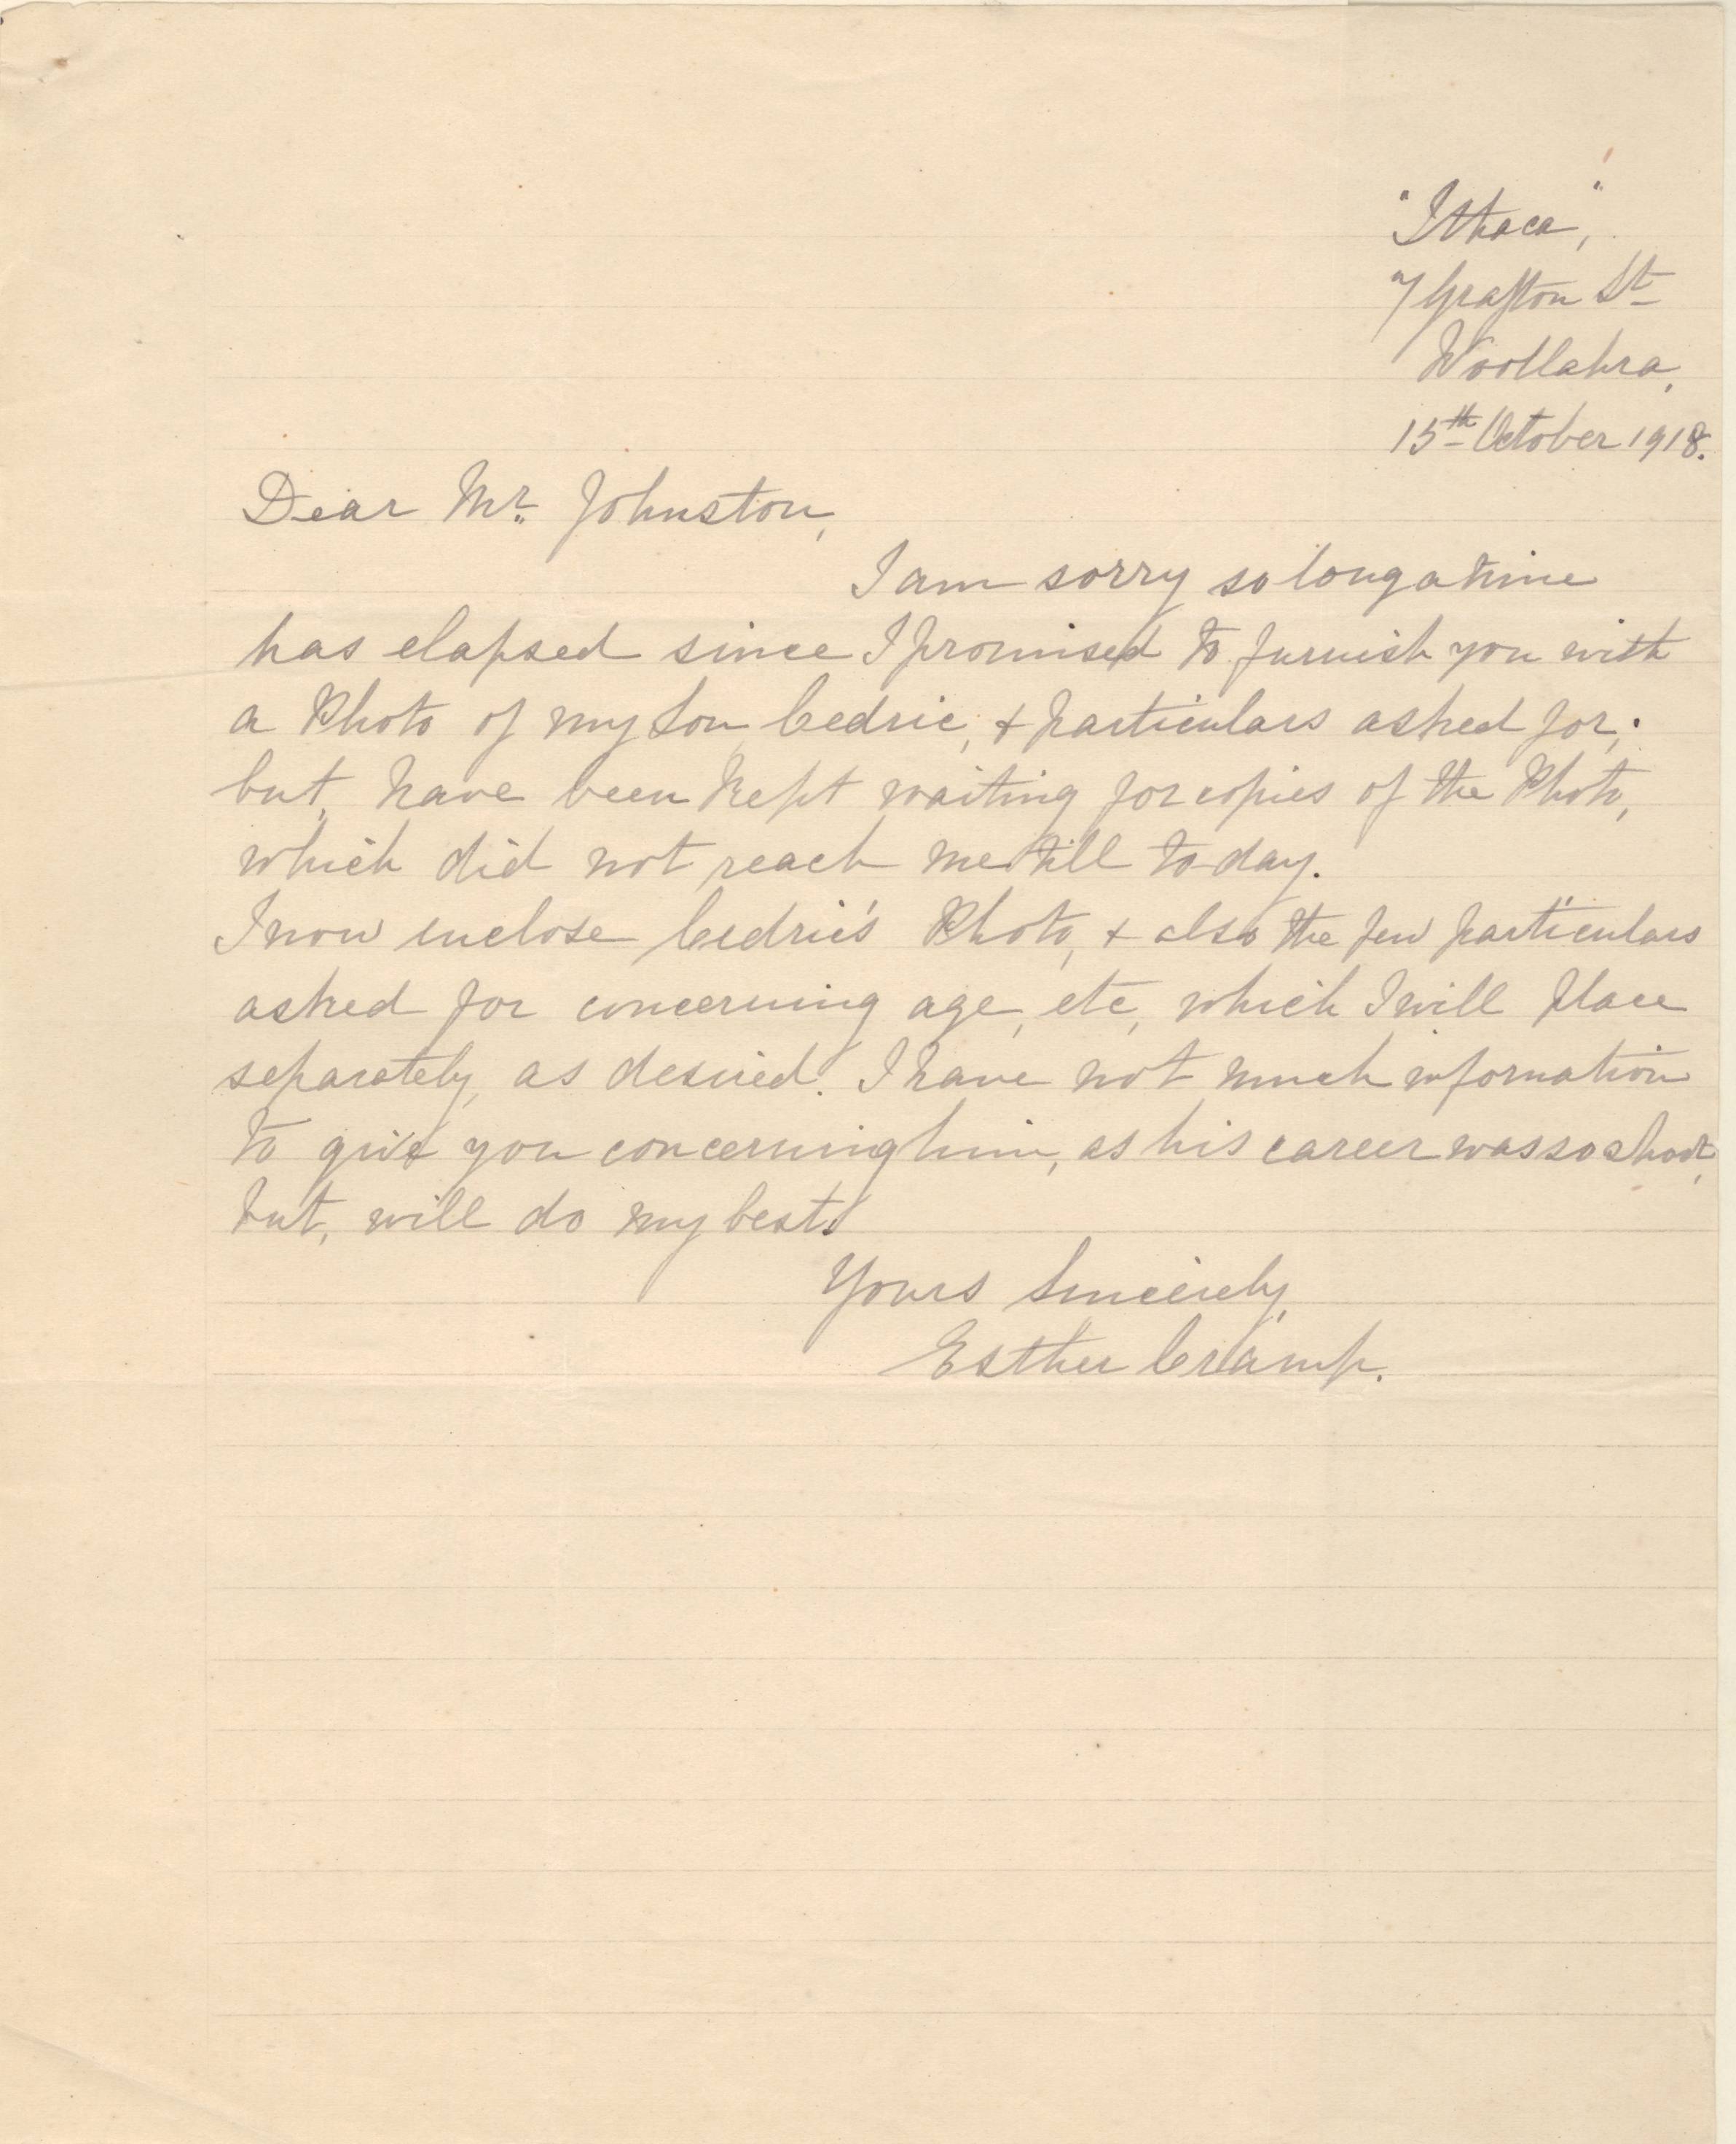 "Ithaca",
7 Grafton St
Woollahra,
15th October 1918.
Dear Mr. Johnston,
I am sorry so long a time
has elapsed since I promised to furnish you with
a Photo of my Son Cedric, & particulars asked for;
but, have been kept waiting for copies of the Photo,
which did not reach me till to-day.
I now enclose Cedric's Photo, & also the few particulars
asked for concerning age, etc, which I will place
separately, as desired. I have not much information
to give you concerning him, as his career was so short,
but, will do my best.
Yours Sincerely,
Esther Cramp.